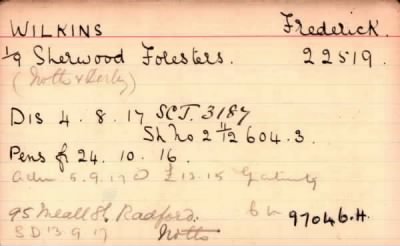 WILKINS Frederick.
1/9 Sherwood Foresters. 22519.
(Notts & Derby)
DIS 4. 8. 17 SCT. 3187
Sh No 2 11/2 604.3.
Pens fr 24. 10. 16.
adm 5.9.17 £13-15 Gratuity
95 Neall St. Radford. 97046.H.
SD 13 9 17 Notts